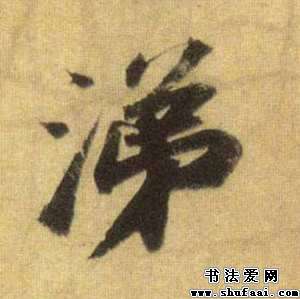 涕
书法爱网
www.shufaai.com